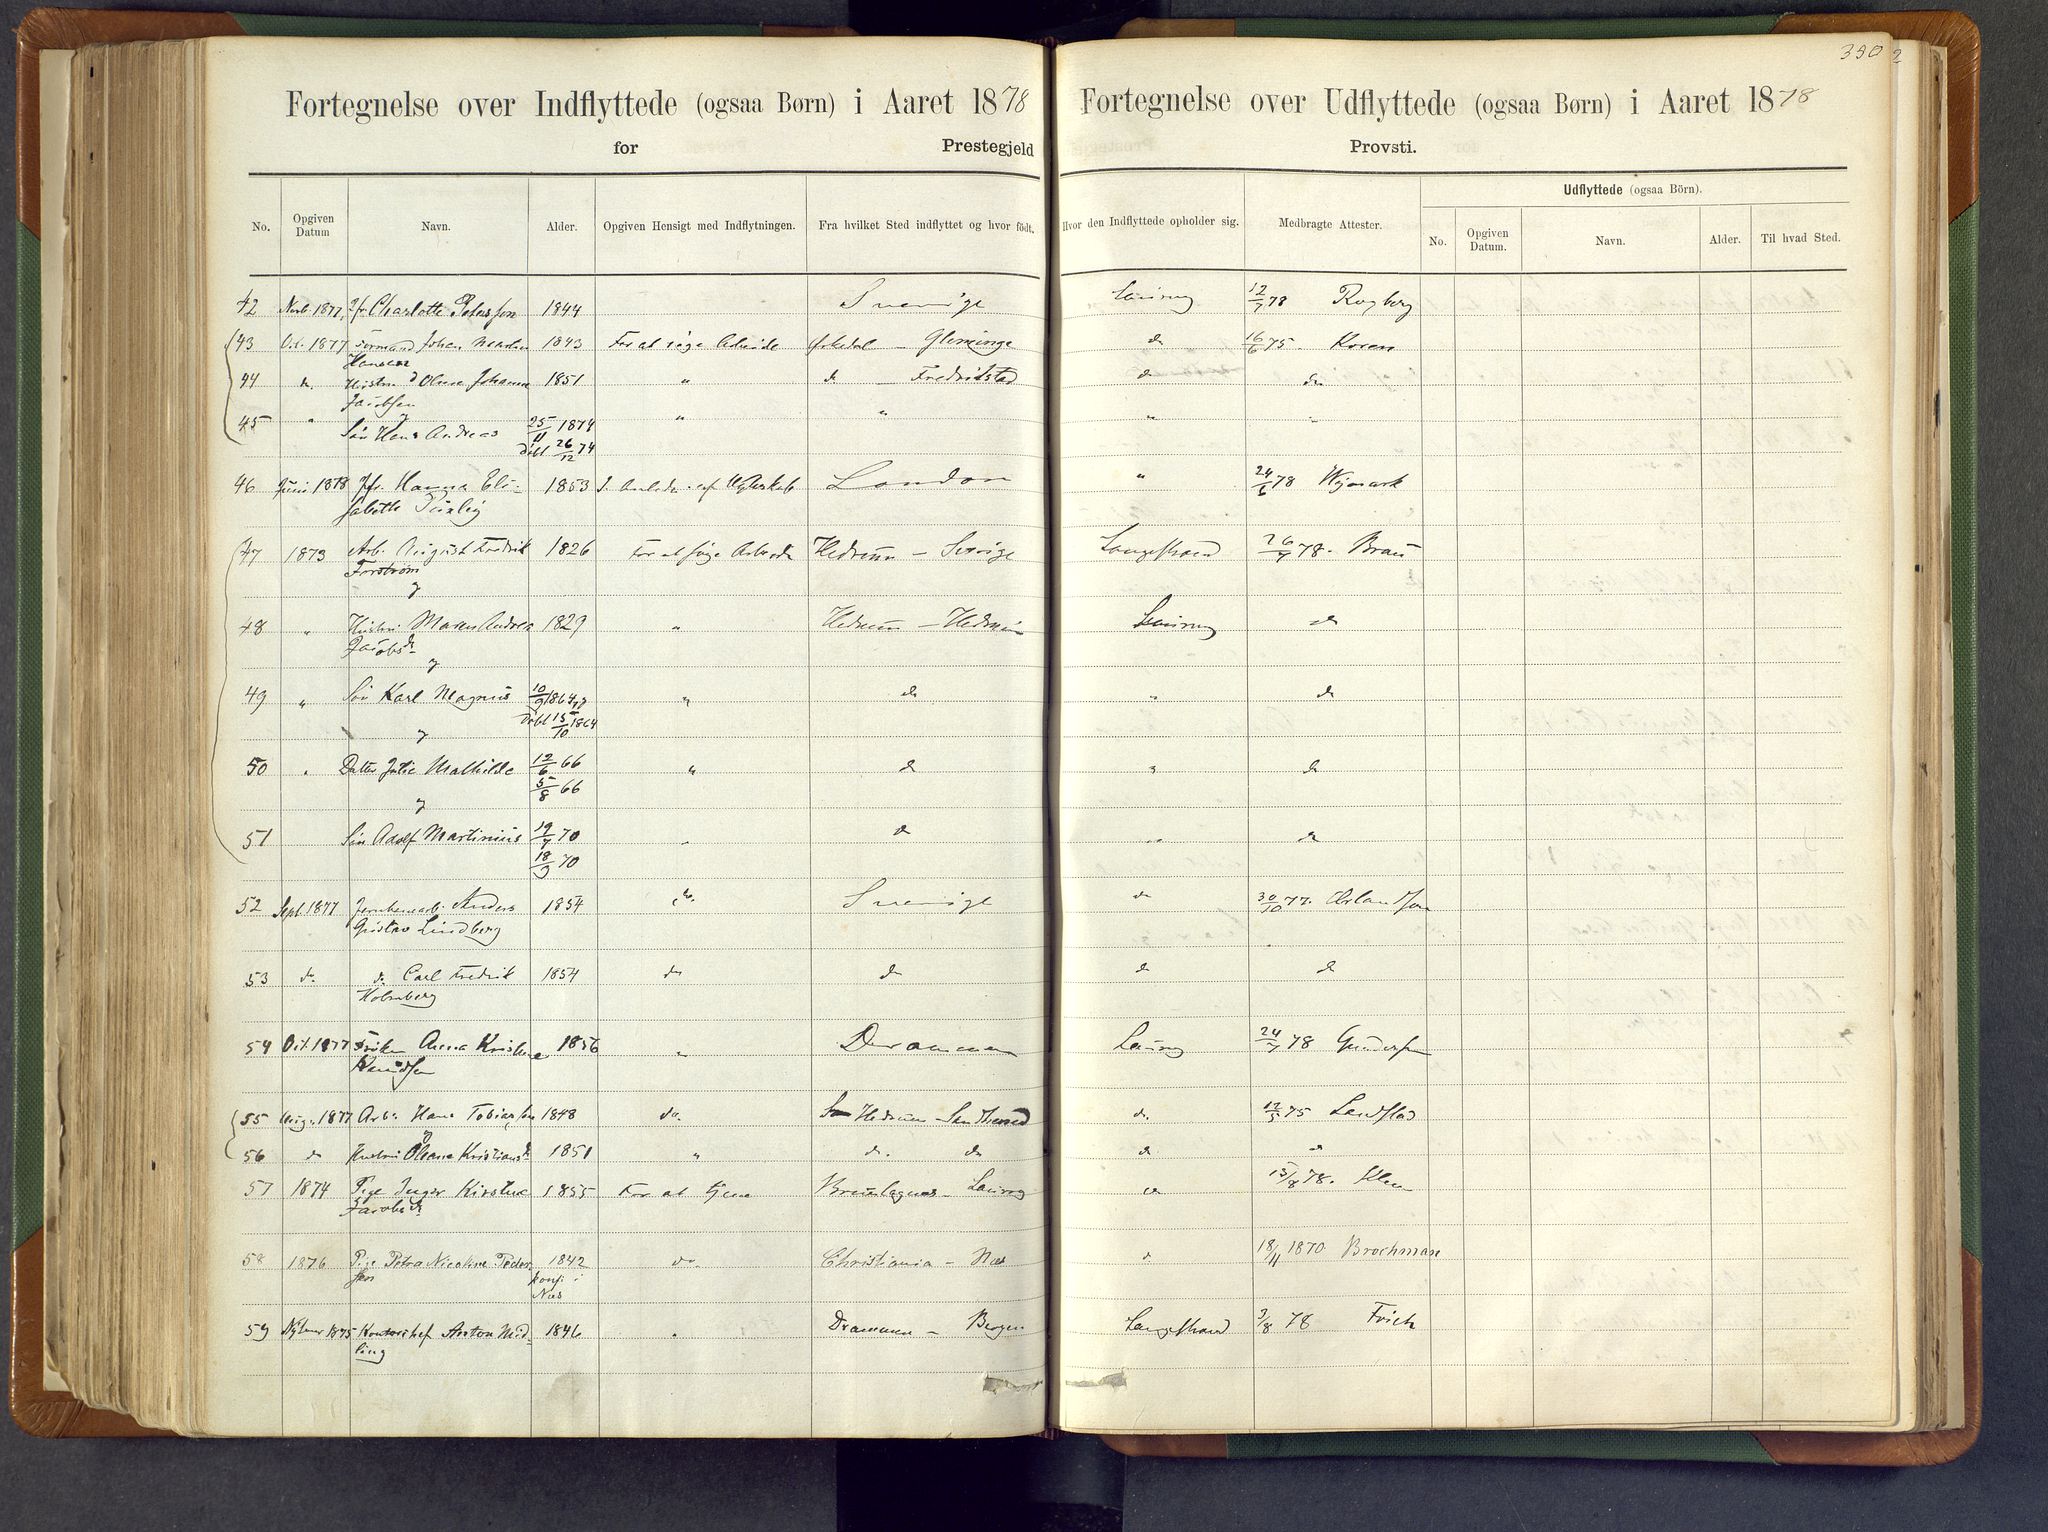 390 2
Fortegnelse over Indflyttede (ogsaa Børn) i Aaret 1878
for Prestegjeld
No. Opgiven Datum Navn. Alder. Opgiven Hensigt med Indflytningen. Fra hvilket Sted indflyttet og hvor født.
Fortegnelse over Udflyttede (ogsaa Børn) i Aaret 1878
Provsti.
Hvor den Indflyttede opholder sig. Medbragte Attester. Udflyttede (ogsaa Börn).
No. Opgiven Datum. Navn. Alder. Til hvad Sted.
42 Novb 1877 Jfr. Charlotte Petersson 1844 Sverige Laurvig 12/7 78 Rogberg
43 Oct. 1877 Formand Johan 1843 For at søge Arbeide Ørkedal – Glemminge do 16/6 75. Koren
Hansen
44 do. Hustru Olava Johanne 1851 " do – Fredrikstad do do
Jacobsen
45 " " " " "
Søn Hans Andreas 25/11 1874
døbt 26/12 74
46 Juni 1878 Jfr. Hanna Eli- 1853 London " 24/6 78 Wijmark
sabeth
47 1873 Arb. August Fredrik 1826 For at søge Arbeide Hedrum – Sverige Langestrand 26/7 78. Brun
Forström
og
48 " Hustru Maren Andrea 1829 " Hedrum – Hedrum Laurvig do
Jacobsdr
og
49 " Søn Karl Magnus 10/9 1864 " do " do
og døbt 15/10 1864
50 " Datter Julie Mathilde 12/6 66 " do " do
5/8 66
og
51 Søn Adolf Martinius 19/7 70 " do " do
18/9 70
52 Sept 1877 Jernbanearb. Anders 1854 do. Sverige do 30/10 77. Erlandson
Gustav Lindberg
53 do. do. Carl Fredrik 1854 do do do do
Holmberg
54 Oct. 1877 Frøken Anna Kristine 1856 " Drammen Laurvig 24/7 78 Gundersen
Knudsen
55 Aug. 1877 Arb. Hans Tobiassen 1848 do. Hedrum – Sandherred do. 12/5 75 Landstad
og
56 do Hustru Oleane Kristiansdr 1851 " do. do do do
57 1874 Pige Inger Kirstine 1855 For at tjene Brunlagnes – Laurvig do 15/8 78. Klem
Jacobsdr
58 1876 Pige Petra Nicoline Peder- 1842 do. Christiania – Næs do 18/11 1870 Brochman
sen konf. i
Næs
59 Nytaar 1875 Kontorchef Anton Mid- 1846 " Drammen – Bergen Langestrand 3/8 78 Frich
ling